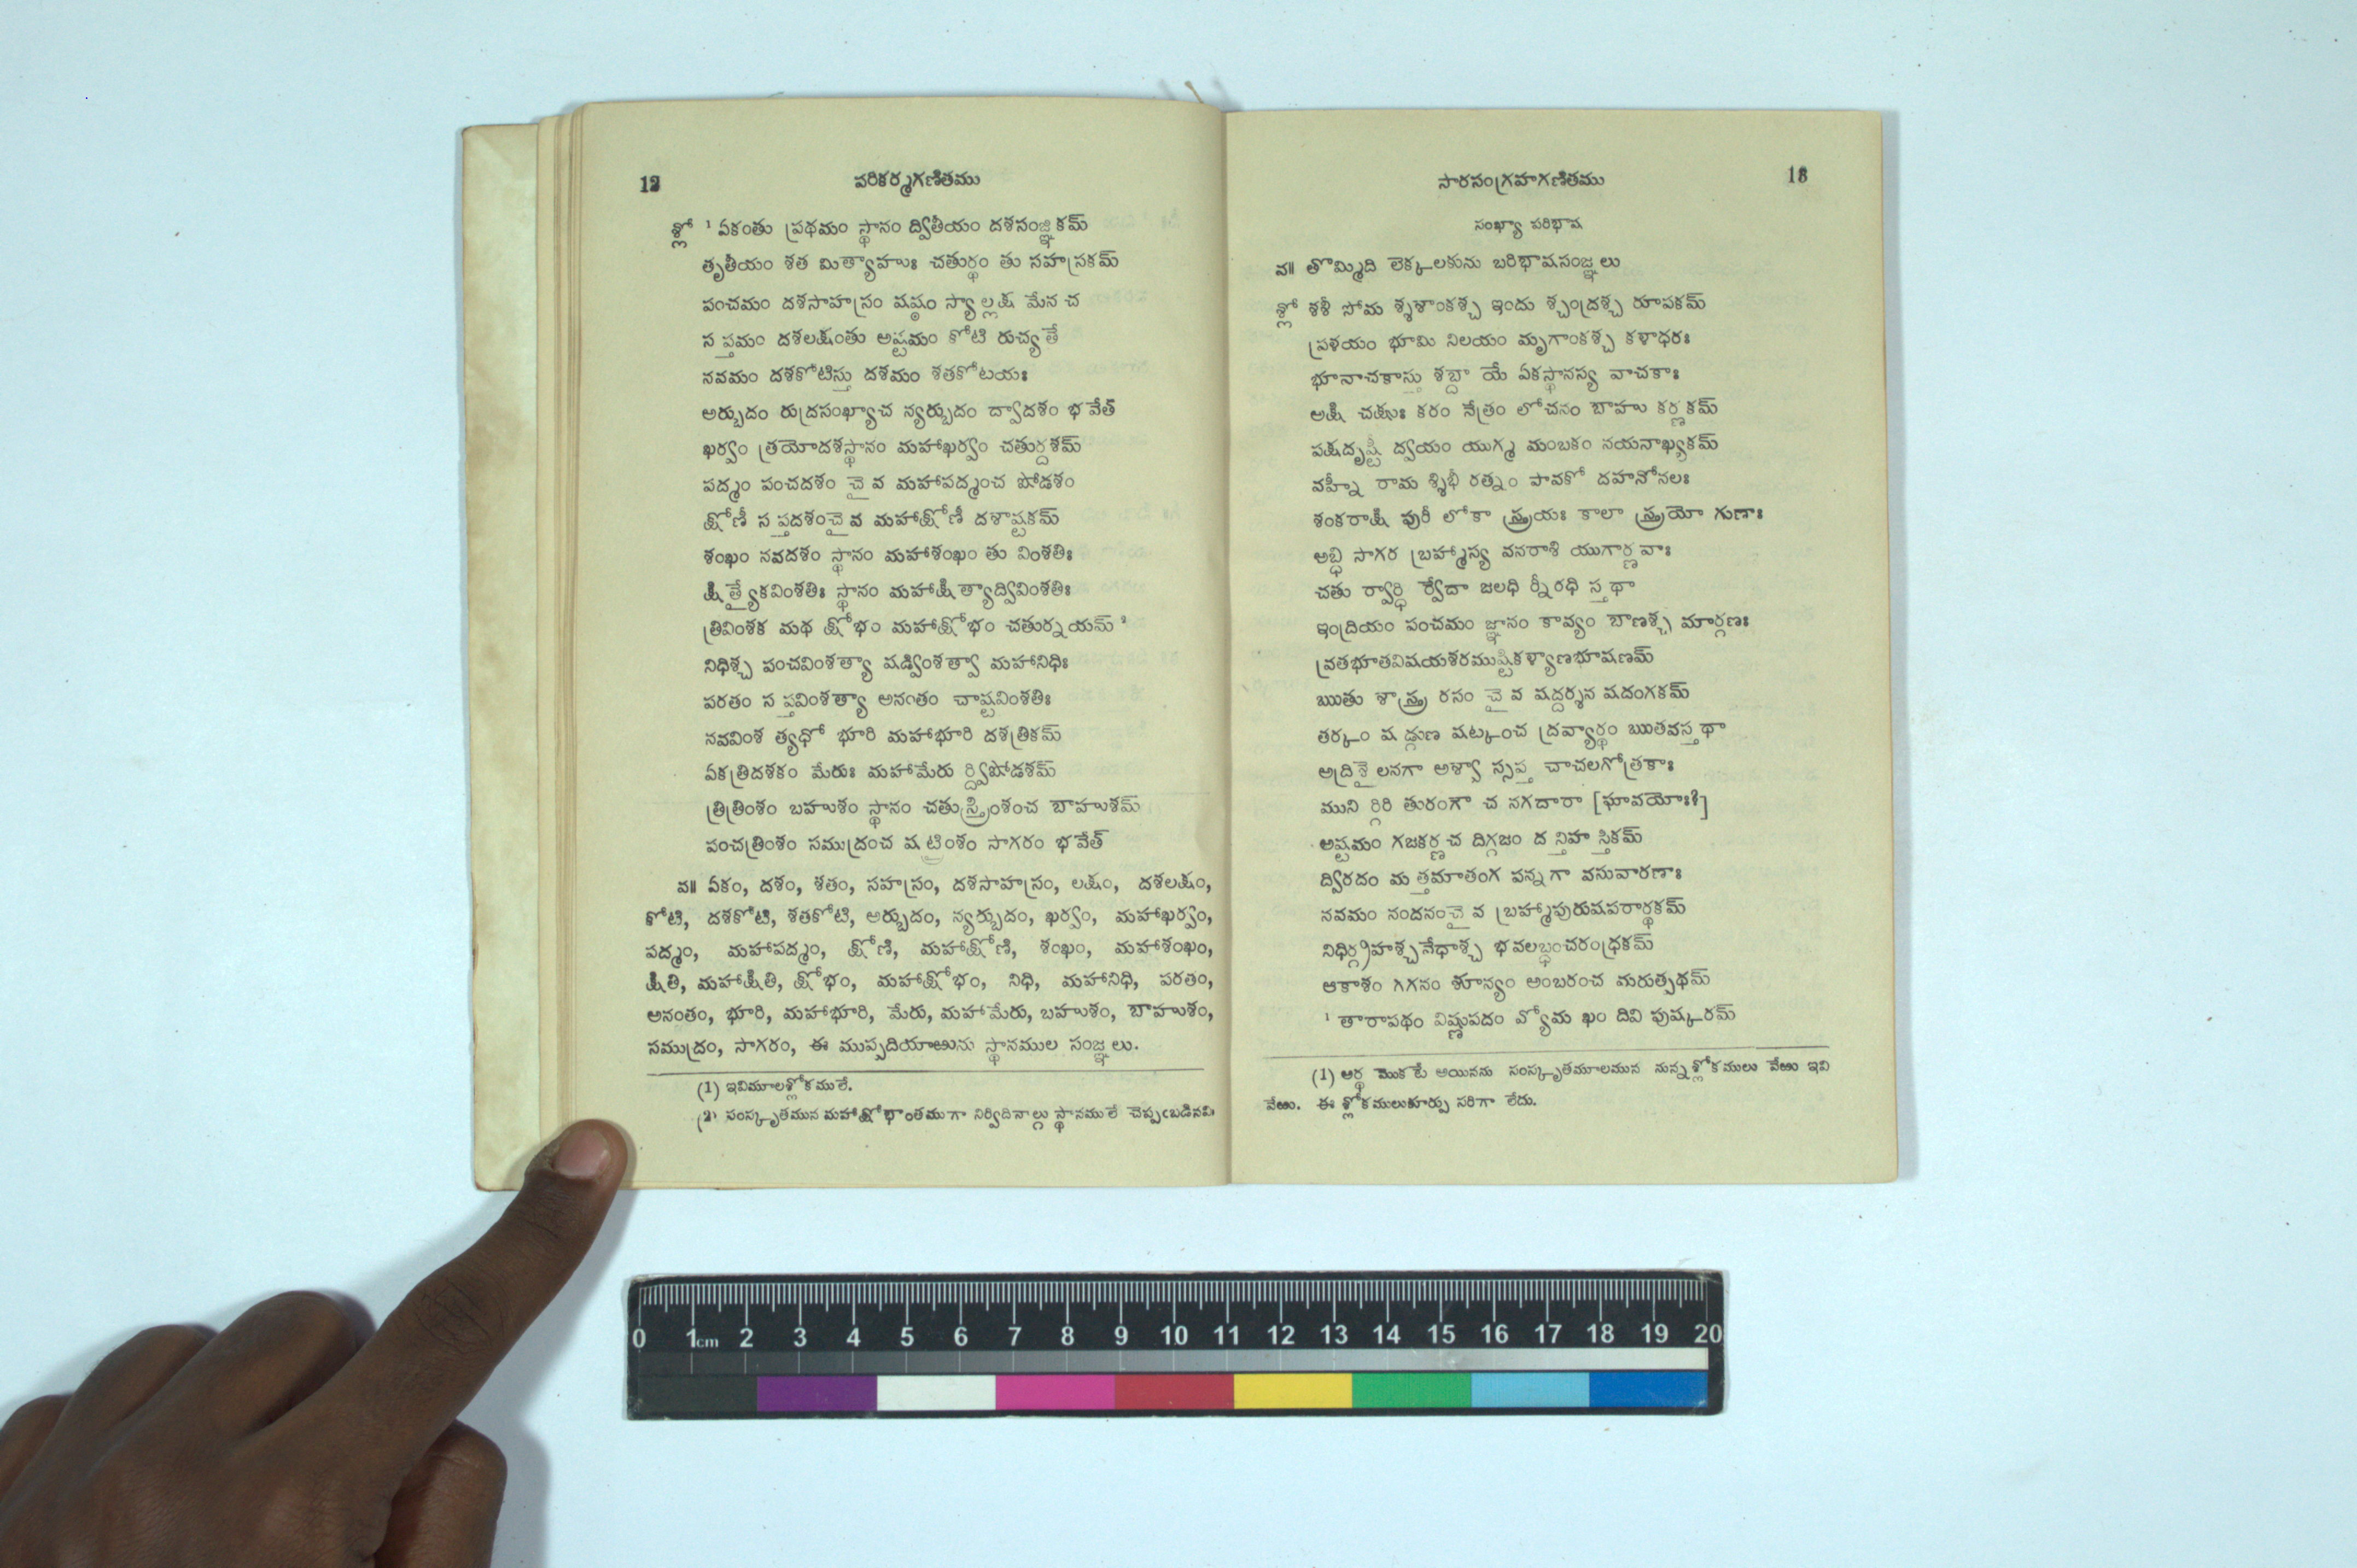 12
పరికర్మగణితము
శ్లో ¹ ఏకంతు ప్రథమం స్థానం ద్వితీయం దశసంజ్ఞికమ్
తృతీయం శత మిత్యాహుః చతుర్థం తు సహస్రకమ్
పంచమం దశసాహస్రం షష్ఠం స్యాల్లక్ష మేన చ
స ప్తమం దశలక్షంతు అష్టమం కోటి రుచ్య తే
నవమం దశకోటిస్తు దశమం శతకోటయః
అర్బుదం రుద్రసంఖ్యాచ న్యర్బుదం ద్వాదశం భ వేత్
ఖర్వం త్రయోదశస్థానం మహాఖర్వం చతుర్దశమ్
పద్మం పంచదశం చై వ మహాపద్మంచ షోడశం
క్షోణీ స ప్తదశంచై వ మహాక్షోణీ దశాష్టకమ్
శంఖం నవదశం స్థానం మహాశంఖం తు వింశతిః
క్షి త్యైకవింశతిః స్థానం మహాక్షి త్యాద్వివింశతిః
త్రివింశక మథ క్షోభం మహాక్షోభం చతుర్నయమ్ ²
నిధిశ్చ పంచవింశత్యా షడ్వింశత్వా మహానిధిః
పరతం స ప్తవింశత్యా అనంతం చాష్టవింశతిః
నవవింశ త్యధో భూరి మహాభూరి దశత్రికమ్
ఏకత్రిదశకం మేరుః మహామేరు ర్ద్విషోడశమ్
త్రిత్రింశం బహుశం స్థానం చతుస్త్రింశంచ బాహుశమ్
పంచత్రింశం సముద్రంచ ష ట్త్రింశం సాగరం భ వేత్
వ॥ ఏకం, దశం, శతం, సహస్రం, దశసాహస్రం, లక్షం, దశలక్షం,
కోటి, దశకోటి, శతకోటి, అర్బుదం, న్యర్బుదం, ఖర్వం, మహాఖర్వం,
పద్మం, మహాపద్మం, క్షోణి, మహాక్షోణి, శంఖం, మహాశంఖం,
క్షితి, మహాక్షితి, క్షోభం, మహాక్షోభం, నిధి, మహానిధి, పరతం,
అనంతం, భూరి, మహాభూరి, మేరు, మహామేరు, బహుశం, బాహుశం,
సముద్రం, సాగరం, ఈ ముప్పదియాఱును స్థానముల సంజ్ఞలు.
(1) ఇవిమూలశ్లోకములే.
(2) సంస్కృతమున మహాక్షోభాంతముగా నిర్వదినాల్గు స్థానములే చెప్పఁబడినవి
సారసంగ్రహగణితము
సంఖ్యా పరిభాష
వ॥ తొమ్మిది లెక్కలకును బరిభాషసంజ్ఞలు
శ్లో శశీ సోమ శ్శశాంకశ్చ ఇందు శ్చంద్రశ్చ రూపకమ్
ప్రళయం భూమి నిలయం మృగాంకశ్చ కళాధరః
భూనాచకాస్తు శబ్దా యే ఏకస్థానస్య వాచకాః
అక్షి చక్షుః కరం నేత్రం లోచనం బాహు కర్ణకమ్
పక్షదృష్టి ద్వయం యుగ్మ మంబకం నయనాఖ్యకమ్
వహ్ని రామ శ్శిఖీ రత్నం పావకో దహనోనలః
శంకరాక్షి పురీ లోకా స్త్రయః కాలా స్త్రయో గుణాః
అబ్ధి సాగర బ్రహ్మాస్య వనరాశి యుగార్ణవాః
చతు ర్వార్ధి ర్వేదా జలధి ర్నీరధి స్తథా
ఇంద్రియం పంచమం జ్ఞానం కావ్యం బాణశ్చ మార్గణః
వ్రతభూతవిషయశరముష్టికళ్యాణభూషణమ్
ఋతు శాస్త్ర రసం చై వ షద్దర్శన షదంగకమ్
తర్కం ష డ్గుణ షట్కంచ ద్రవ్యార్థం ఋతవస్తథా
అద్రిశై లనగా అశ్వా స్సప్త చాచలగోత్రకాః
ముని ర్గిరి తురంగా చ నగదారా [ఘావయోః?]
అష్టమం గజకర్ణచ దిగ్గజం ద న్తిహ స్తికమ్
ద్విరదం మ త్తమాతంగ పన్నగా వసువారణాః
నవమం నందనంచై వ బ్రహ్మాపురుషపరార్థకమ్
నిధిర్గ్రహశ్చనేధాశ్చ భవలబ్ధంచరంధ్రకమ్
ఆకాశం గగనం శూన్యం అంబరంచ మరుత్పథమ్
¹ తారాపథం విష్ణుపదం వ్యోమ ఖం దివి పుష్కరమ్
(1) అర్థ మొకటే అయినను సంస్కృతమూలమున నున్న శ్లోకములు వేఱు ఇవి
వేఱు. ఈ శ్లోకములుకూర్పు సరిగా లేదు.
0 1cm 2 3 4 5 6 7 8 9 10 11 12 13 14 15 16 17 18 19 20